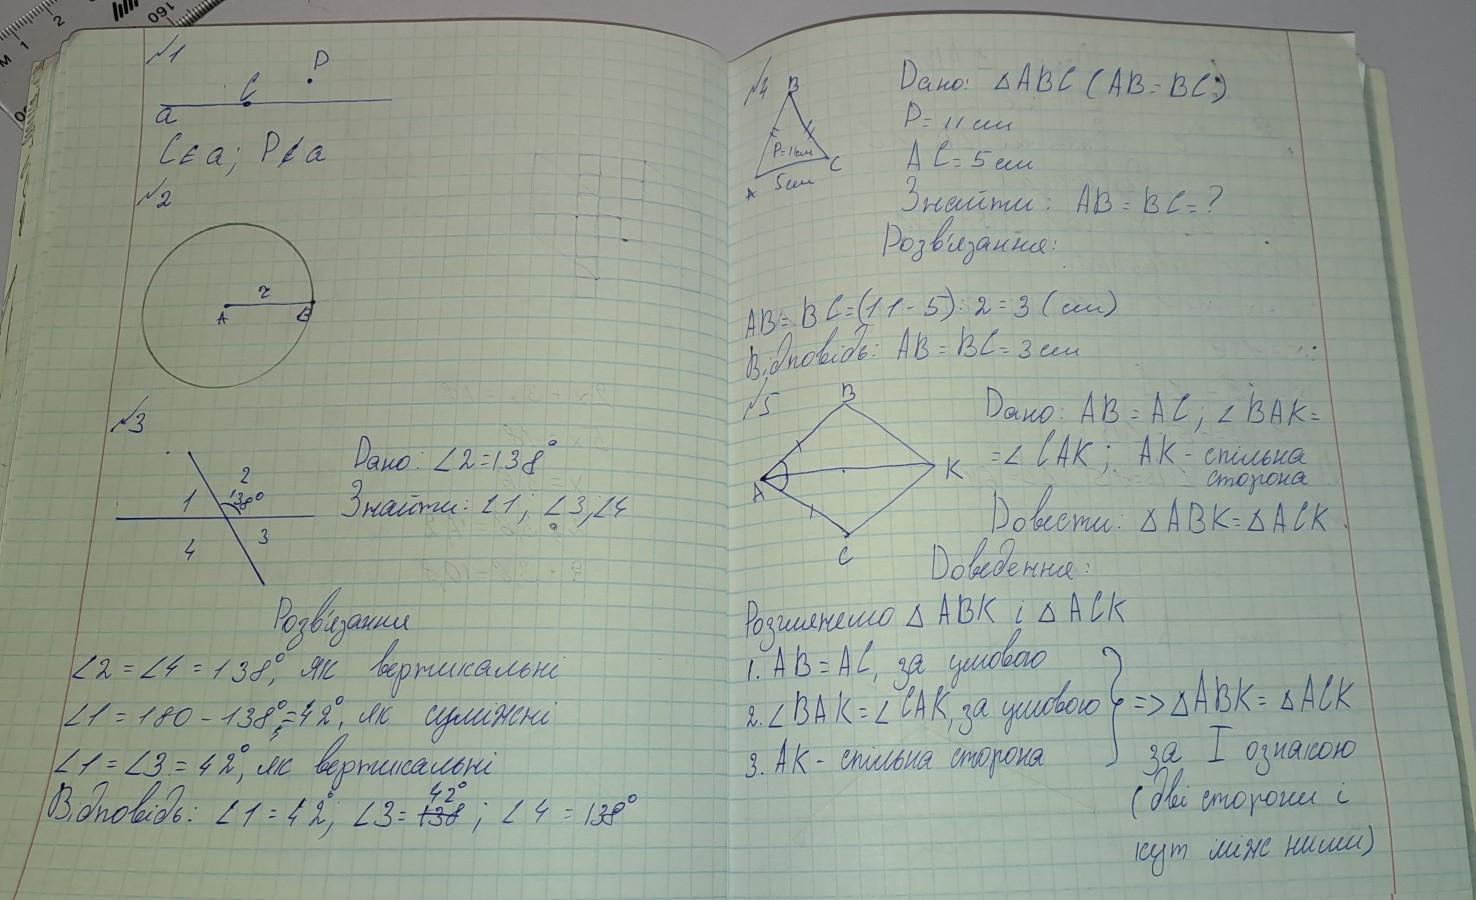 №1
P
C
a
C ∈ a; P ∉ a
№2
r
A
B
№3
2
1
138°
3
4
Дано: ∠2=138°
Знайти: ∠1; ∠3; ∠4
Розв'язання
∠2 = ∠4 = 138°, як вертикальні
∠1 = 180 - 138° = 42°, як суміжні
∠1 = ∠3 = 42°, як вертикальні
42°
Відповідь: ∠1 = 42°; ∠3 = 138; ∠4 = 138°
№4
B
P=11см
C
A
5см
Дано: △ABC (AB = BC)
P = 11 см
AC = 5 см
Знайти: AB = BC = ?
Розв'язання:
AB = BC = (11 - 5) : 2 = 3 (см)
Відповідь: AB = BC = 3 см
№5
B
A
K
C
Дано: AB = AC; ∠BAK =
= ∠CAK; AK - спільна
сторона
Довести: △ABK = △ACK.
Доведення:
Розглянемо △ABK і △ACK
1. AB = AC, за умовою
2. ∠BAK = ∠CAK, за умовою => △ABK = △ACK
3. AK - спільна сторона
за I ознакою
(дві сторони і
кут між ними)